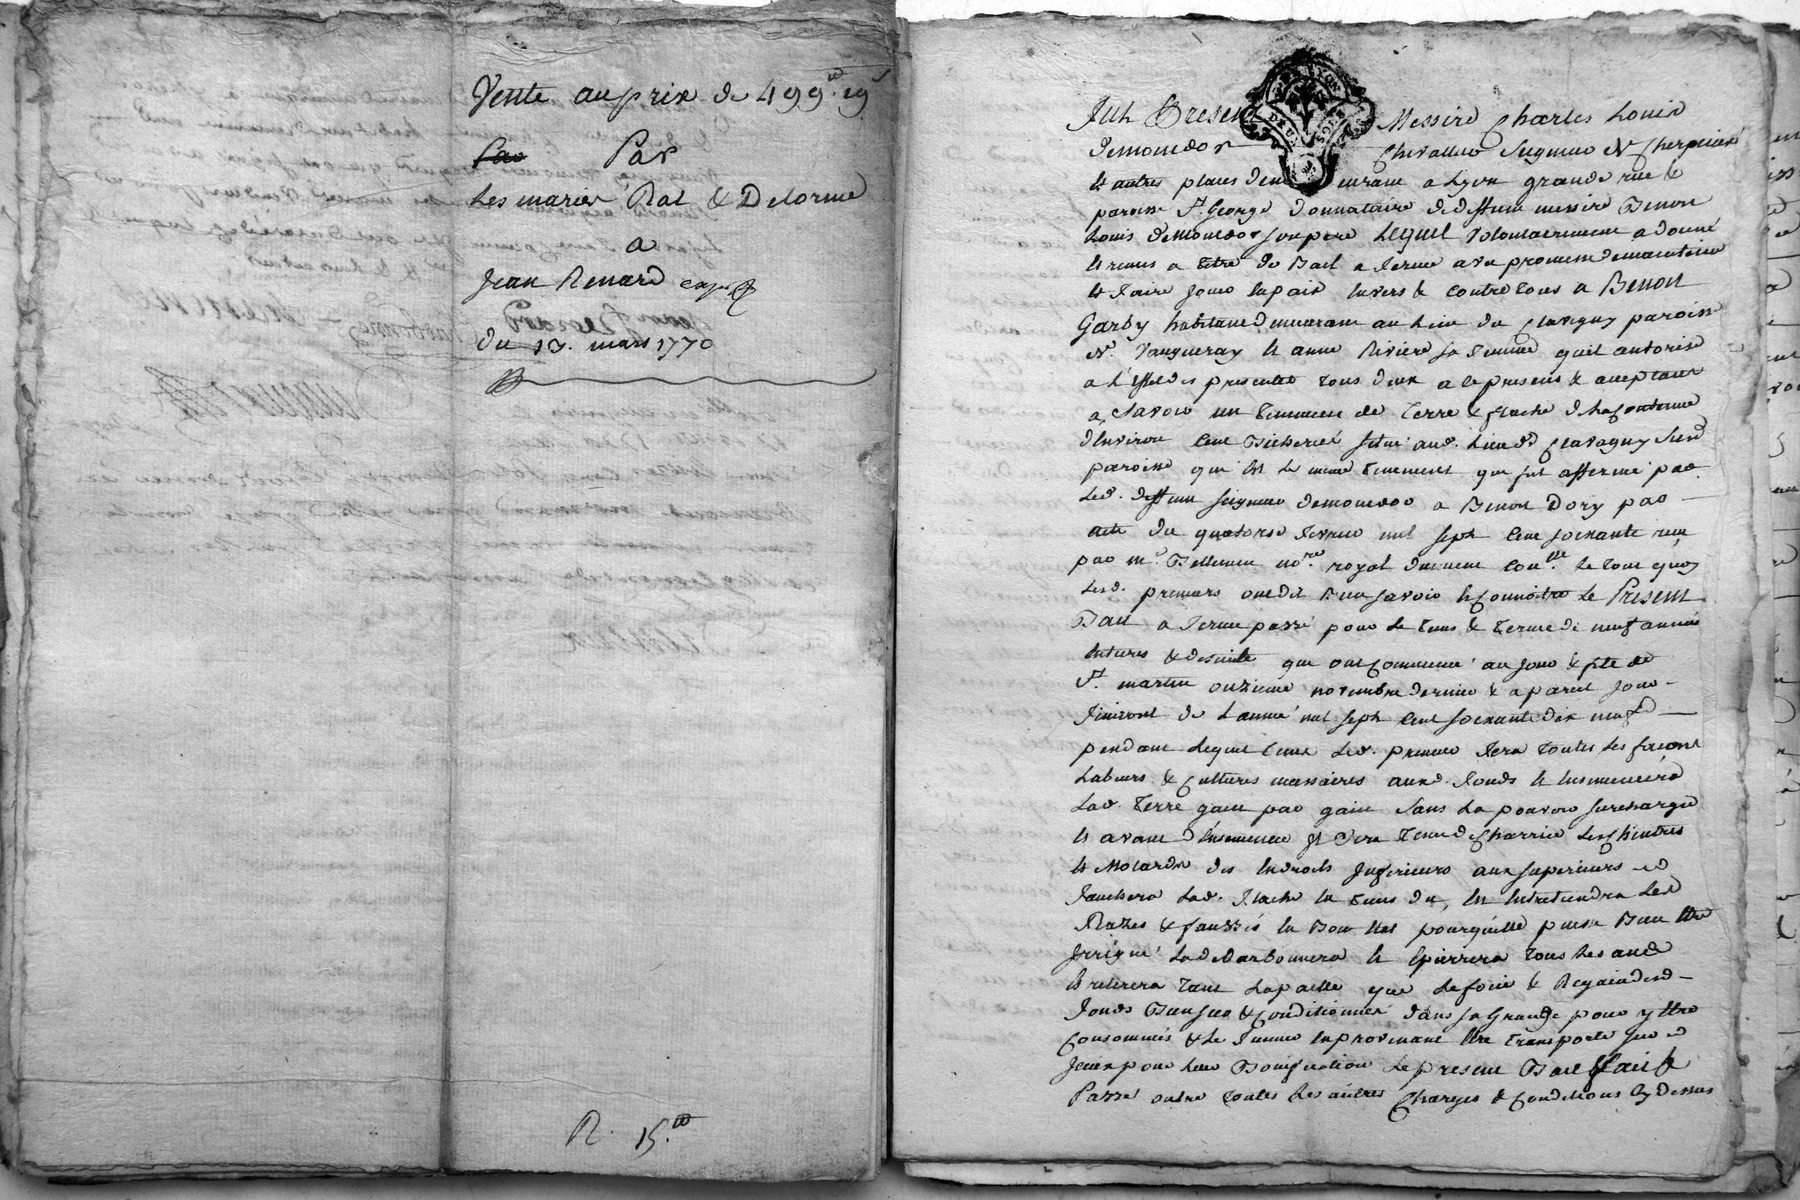 Vente au prix de 499.tt 19 s
Par
Les mariés Rat & Delorme
a
Jean Renard
du 13. mars 1770
R. 15.tt
DEUX SOLS
Fut Present Messire Charles Louis
demondor Chevallier Seigneur
& autres places demeurant a Lyon grande rue &
paroisse St. George donnataire de deffunt messire Benoit
Louis demondor son pere Lequel volontairement a donné
& remis a titre de Bail a ferme avec promesse de maintenir
& faire jouir en paix envers & contre tous a Benoit
Garby habitant demeurant au lieu de Clavigny paroisse
de Vaugneray & anne Riviere sa femme qu'il autorise
a l'effet des presentes tous deux a ce presents & acceptant
a Savoir un tennement de terre & flache de la contenue
d'Environ Cent Bicherées situé aud. lieu de Clavagny susd
paroisse qui est le meme tennement qui fut affermé par
led. deffunt seigneur demondor a Benoit Dory par
acte du quatorze fevrier mil sept Cent soixante
par me. no.re royal duement con.llé le tout quoy
Lesd. preneurs ont dit Bien savoir & connoitre Le Present
Bail a ferme passé pour le tems & terme de neuf années
entieres & de suite qui ont commencé au jour & fete de
St. martin onzieme novembre dernier & a pareil jour
finiront de L'année mil sept Cent soixante dix neuf
pendant lequel tems led. preneur fera toutes les façons
Labours & Cultures necessaires auxd. fonds & ensemencera
Lad. terre gain par gain sans La pouvoir surcharger
& avant d'ensemencer il sera tenu de charrier les Chintres
& Molards des Endroits Inferieurs aux superieurs
fauchera Lad. flache en tems du, en entretiendra Les
Razes & faussés en Bon Etat pour qu'elle puisse Bien Etre
Irrigué La & Epierrera tous Les ans
& retirera tant La paille que Le foin & Regain desd
fonds Bien sec & Conditionnés dans sa Grange pour y Etre
Consommés & Le fumier en provenant Etre transporté sur
Iceux pour leur Bonification Le present Bail fait &
Passé outre toutes Les autres Charges & Conditions Cy dessus